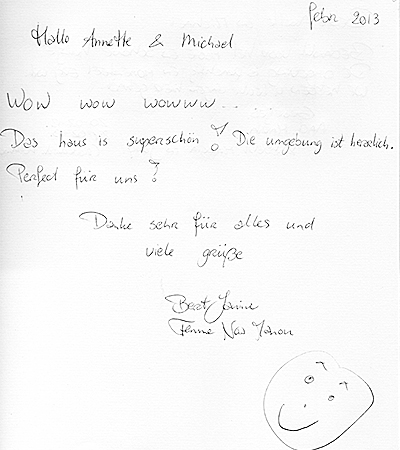 febr 2013
Hallo Annette & Michael
Wow wow wowww.....
Das haus is superschön! Die umgebung ist herzlich.
Perfect für uns!
Danke sehr für alles und
viele grüße
Bert Janine
Femme Noa